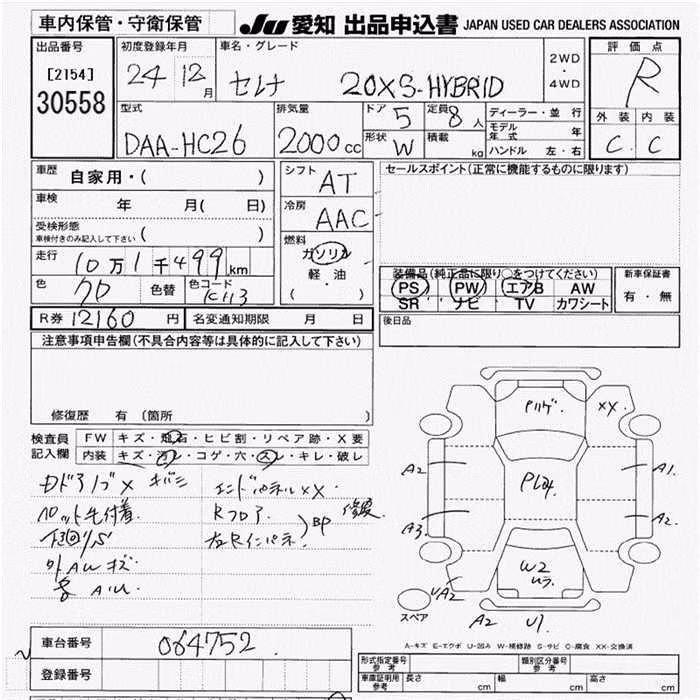 車内保管・守衛保管
JU 愛知 出品申込書 JAPAN USED CAR DEALERS ASSOCIATION
出品番号
[2154]
30558
初度登録年月
24 12月
車名・グレード
セレナ 20XS-HYBRID
2WD
・
4WD
評価点
R
外装 内装
C C
型式
DAA-HC26
排気量
2000cc
ドア 5
定員 8人
形状 W
積載 kg
ディーラー・並行
モデル年式 年
ハンドル 左・右
車歴 自家用・( )
車検 年 月( 日)
受検形態
車検付きのみ記入して下さい ( )
走行 10万1千499km
色 クロ 色替 色コード KH3
シフト AT
冷房 AAC
燃料
ガソリン
軽・油
( ・ )
セールスポイント(正常に機能するものに限ります)
装備品(純正品に限り○をつけてください)
PS PW エアB AW
SR ナビ TV カワシート
新車保証書
有・無
R券 12160円 名変通知期限 月 日
後日品
注意事項申告欄(不具合内容等は具体的に記入して下さい)
修復歴 有(箇所 )
検査員記入欄
FW キズ・飛石・ヒビ割・リペア跡・X要
内装 キズ・汚レ・コゲ・穴・スレ・キレ・破レ
エンドパネルXX
Rフロア
左Rインパネ
BP
修復
外AWキズ
XX
A2
A1
A3
A2
W2
A2
U1
スペア
A-キズ E-エクボ U-凹み W-補修跡 S-サビ C-腐食 XX-交換済
車台番号 064752
登録番号
形式指定番号 参考
類別区分番号 参考
車庫証明用 参考
長さ cm 幅 cm 高さ cm